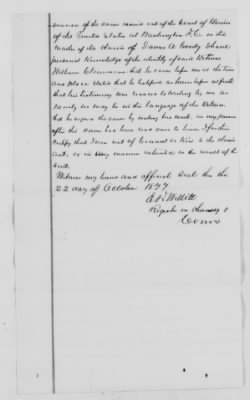 summons of the same issued out of the Court of Claims
of the United States at Washington D.C. in the
matter of the claim of James A. Coody I have
personal Knowledge of the identity of said Witness
William that he came before me at the time
and place stated that he testified as herein before set forth
that his testimony was reduced to writing by me as
nearly as may be in the language of the Witness
that he signed the same by making his mark in my presence
after the same had been read over to him I further
certify that I am not of Counsel or Kin to the claim
ant, or in any manner interested in the result of the
suit.
Witness my hand and official Seal this the
22 day of October 1877
Willett
Register in Chancery &
Comr